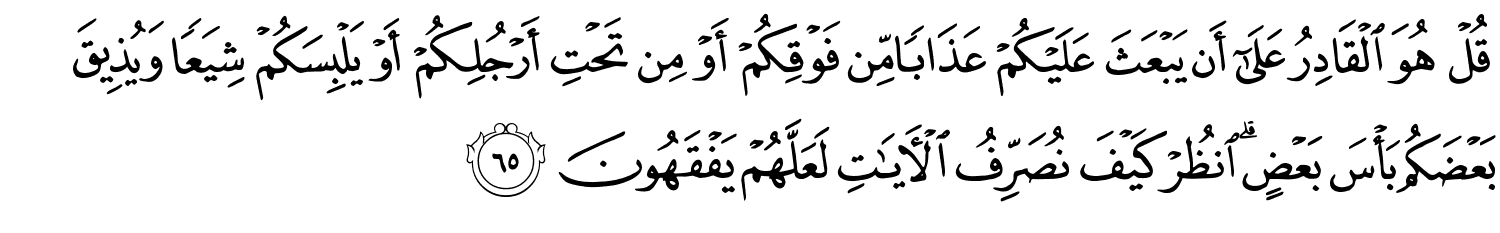 قُلْ هُوَ ٱلْقَادِرُ عَلَىٰٓ أَن يَبْعَثَ عَلَيْكُمْ عَذَابًا مِّن فَوْقِكُمْ أَوْ مِن تَحْتِ أَرْجُلِكُمْ أَوْ يَلْبِسَكُمْ شِيَعًا وَيُذِيقَ
بَعْضَكُم بَأْسَ بَعْضٍ ۗ ٱنظُرْ كَيْفَ نُصَرِّفُ ٱلْـَٔايَـٰتِ لَعَلَّهُمْ يَفْقَهُونَ ٦٥